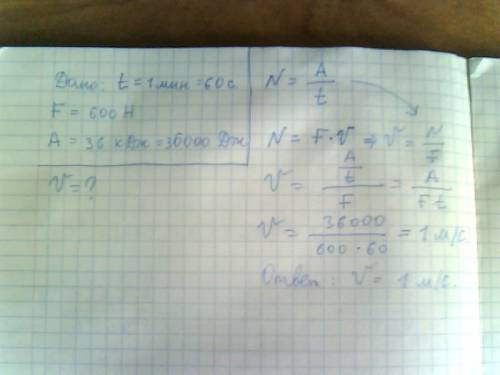 Дано: t = 1 мин = 60 с.
F = 600 Н
A = 36 кДж = 36000 Дж
V = ?
N = A/t
N = F · V ⇒ V = N/F
V = (A/t)/F = A/(Ft)
V = 36000/(600 · 60) = 1 м/с.
Ответ: V = 1 м/с.